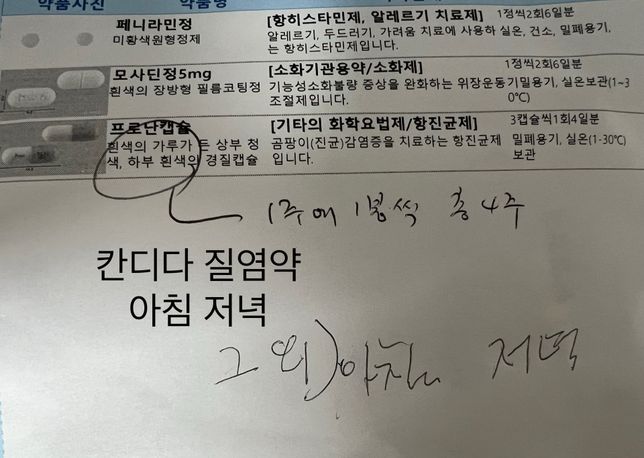 약품사진 약품명
페니라민정 [항히스타민제, 알레르기 치료제] 1정씩2회6일분
미황색원형정제 알레르기, 두드러기, 가려움 치료에 사용하 실온, 건소, 밀폐용기,
는 항히스타민제입니다.
모사딘정5mg [소화기관용약/소화제] 1정씩2회6일분
흰색의 장방형 필름코팅정 기능성소화불량 증상을 완화하는 위장운동 기밀용기, 실온보관(1~3
조절제입니다. 0℃)
프로난캡슐 [기타의 화학요법제/항진균제] 3캡슐씩1회4일분
흰색의 가루가 든 상부 청 곰팡이(진균)감염증을 치료하는 항진균제 밀폐용기, 실온(1-30℃)
색, 하부 흰색의 경질캡슐 입니다. 보관
1주에 1봉씩 총 4주
칸디다 질염약
아침 저녁
그 외) 아침 저녁